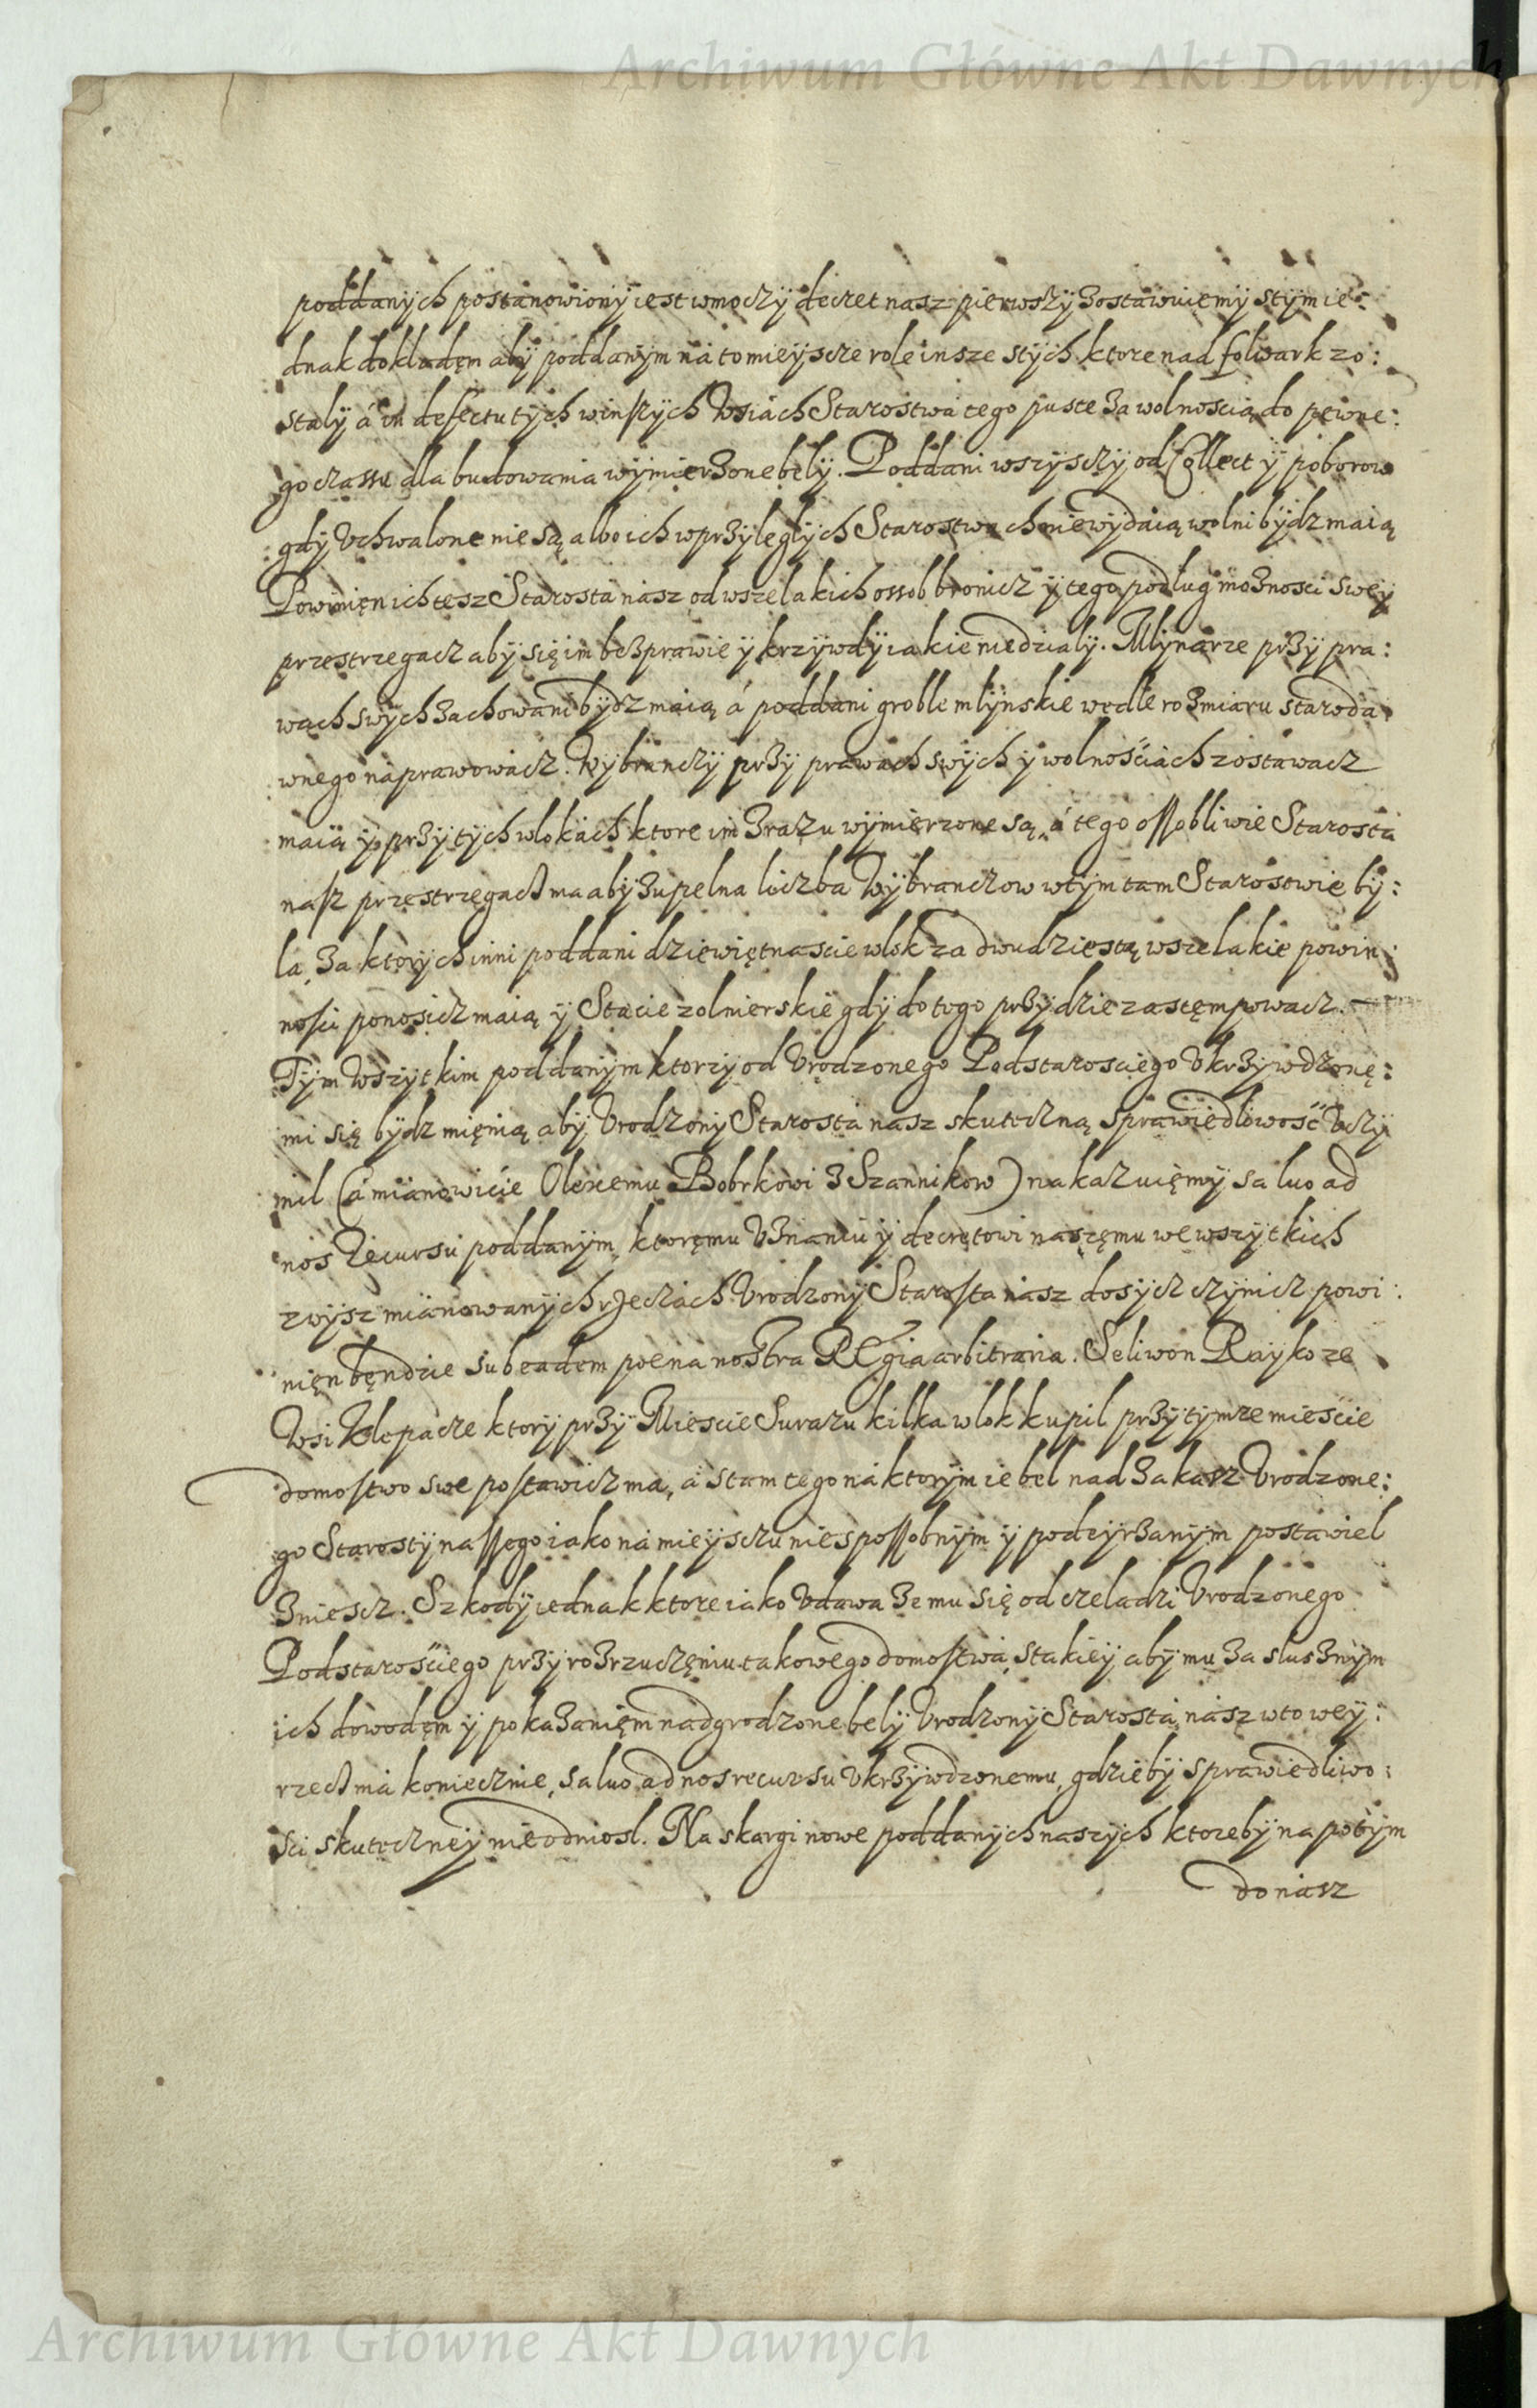 Archiwum Główne Akt Dawnych
poddanych postanowiony iest wmoczy decret nasz pierwszy zostawuiemy stym ie:
dnak dokladem aby poddanym na to mieysce role insze stych ktore nad folwark zo:
staly á in defectu tych winszych Wsiach Starostwa tego puste za wolnoscią do pewne:
go czassu dla budowania wymierzone bely. Poddani wszysczy od Collect y poborow
gdy Vchwalone nie są albo ich wprzyleglych Starostwach nie wydaią wolni bydz maią
Powinien ich tesz Starosta nasz od wszelakich ossob bronicz y tego podlug moznosci swey
przestrzegacz aby się im bezprawie y krzywdy iakie niedzialy. Mlynarze przy pra:
wach swych zachowani bydz maią á poddani groble mlynskie wedle rozmiaru staroda
wnego naprawowacz. Wybranczy przy prawach swych y wolnościach zostawacz
maią y przy tych wlokach ktore im zrazu wymierzone są, á tego ossobliwie Starosta
nasz przestrzegacz ma aby zupelna liczba Wybranczow wtym tam Starostwie by:
la, za ktorych inni poddani dziewiętnascie wlok za dwudziestą wszelakie powin:
nosci ponosicz maią y Stacie zolnierskie gdy do tego przydzie zastęmpowacz.
Tym Wszytkim poddanym ktorzy od Vrodzonego Podstarosciego Vkrzywdzonę:
mi się bydz mienią aby Vrodzony Starosta nasz skuteczną sprawiedliwość Vczy
nil (á mianowicie Olexemu Bobrkowi z Szannikow) nakazuięmy saluo ad
nos Recursu poddanym, ktoremu Vznaniu y decretowi naszęmu we wszytkich
zwysz mianowanych rzeczach Vrodzony Starosta nasz dosycz czynicz powi:
nięn będzie sub eadem poena nostra REgia arbitraria. Seliwon Rayko ze
Wsi Klepacze ktory przy Miescie Surazu kilka wlok kupil przy tymze mieście
domostwo swe postawicz ma, á stamtego na ktorym ie bel nad zakasz Vrodzone:
go Starosty nassego iako na mieysczu niespossobnym y podeyrzanym postawiel
zniescz. Szkody iednak ktore iako Vdawa ze mu się od czeladzi Vrodzonego
Podstarościego przy rozrzuczęniu takowego domostwa, stakiey aby mu za slusznym
ich dowodęm y pokazanięm nadgrodzone bely Vrodzony Starosta nasz wto wey:
rzecz ma koniecznie, saluo ad nos recursu Vkrzywdzonemu, gdzie by sprawiedliwo:
sci skuteczney nie odniosl. Na skargi nowe poddanych naszych ktoreby na potym
do nasz
Archiwum Główne Akt Dawnych